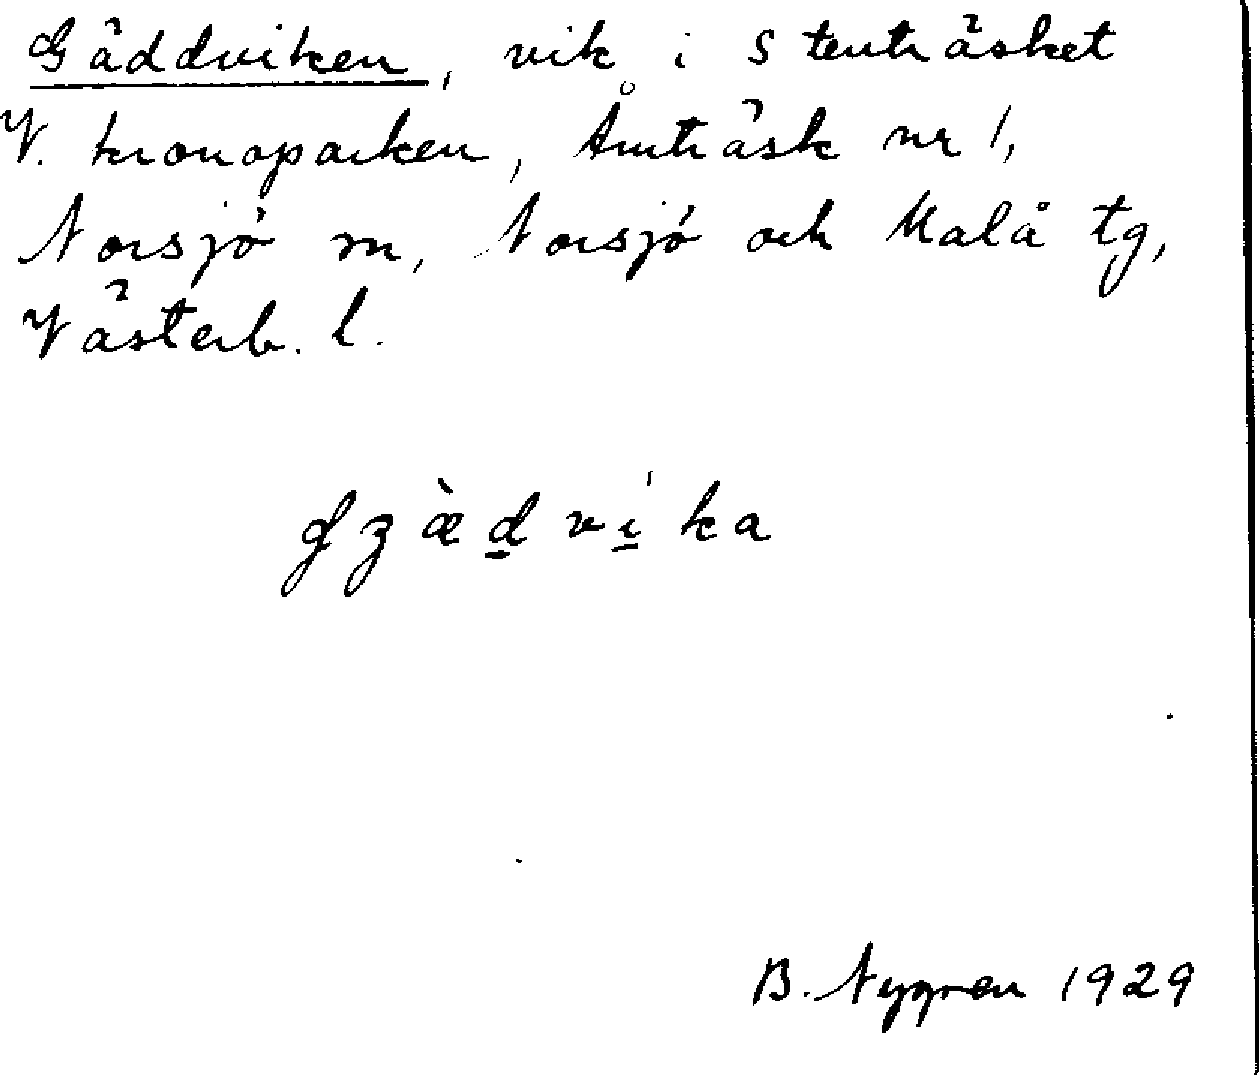 Gäddviken, vik i Stenträsket
V. kronoparken, Åmträsk nr 1,
Norsjö m, Norsjö och Malå tg,
Västerb. l.
gʒæ̀d̲vi̲ka
B. Nygren 1929